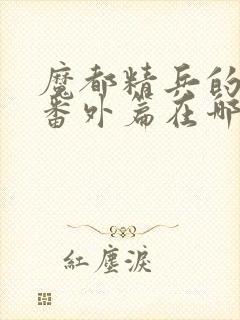 魔都精兵的
番外篇在哪
紅塵淚